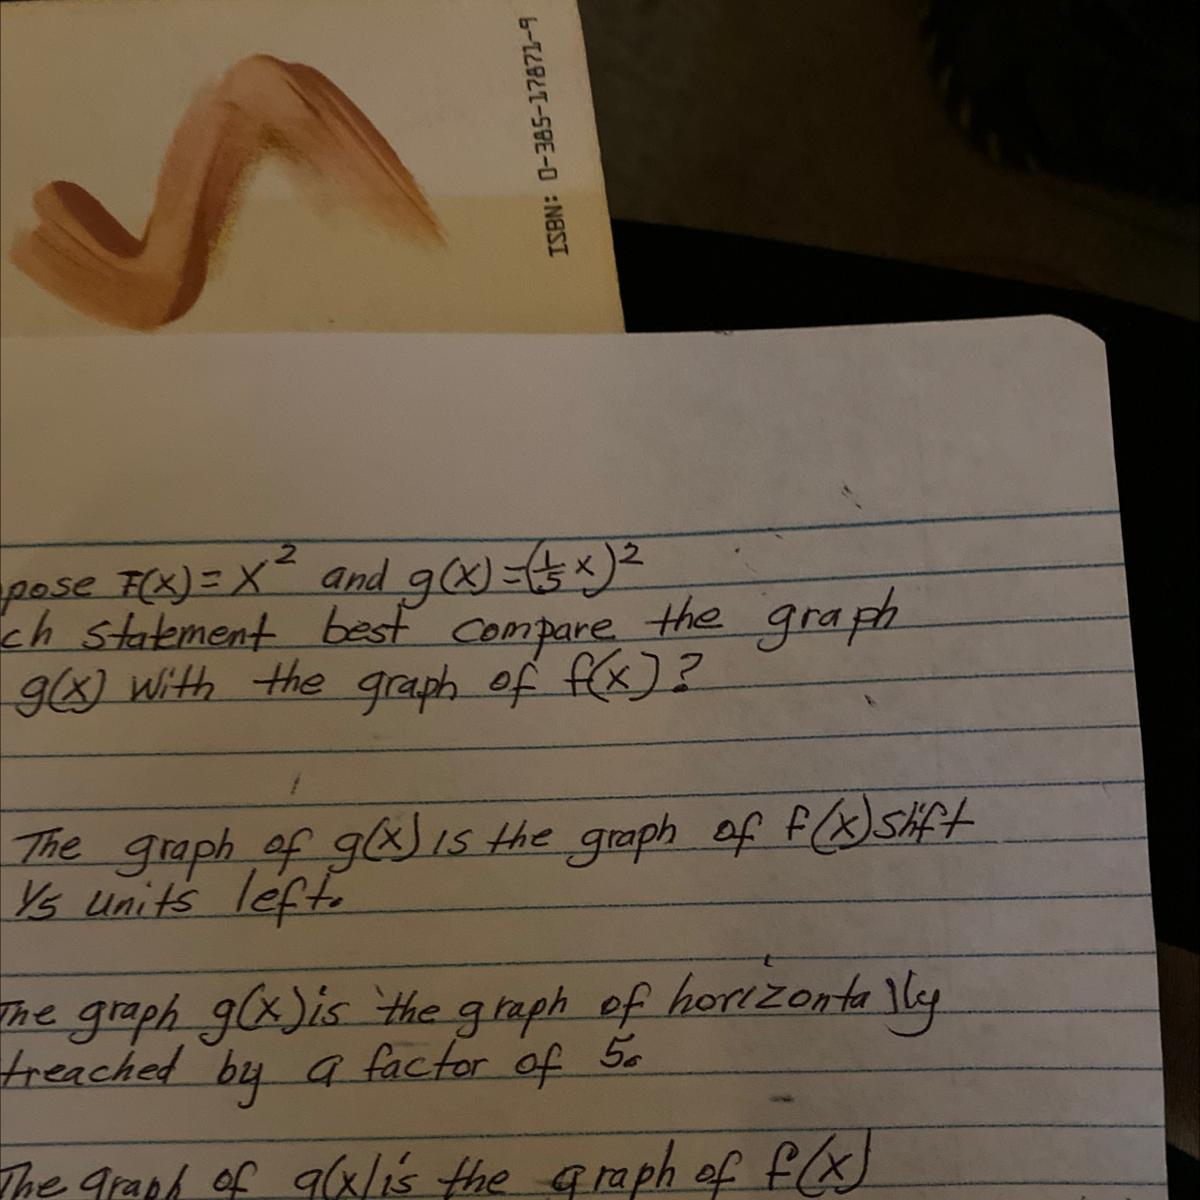 ISBN: 0-385-17871-9
pose F(x) = x² and g(x) = (1/5 x)²
ch statement best compare the graph
g(x) with the graph of f(x)?
The graph of g(x) is the graph of f(x) shift
1/5 units left.
The graph g(x) is the graph of horizontally
treached by a factor of 5.
The graph of g(x) is the graph of f(x)